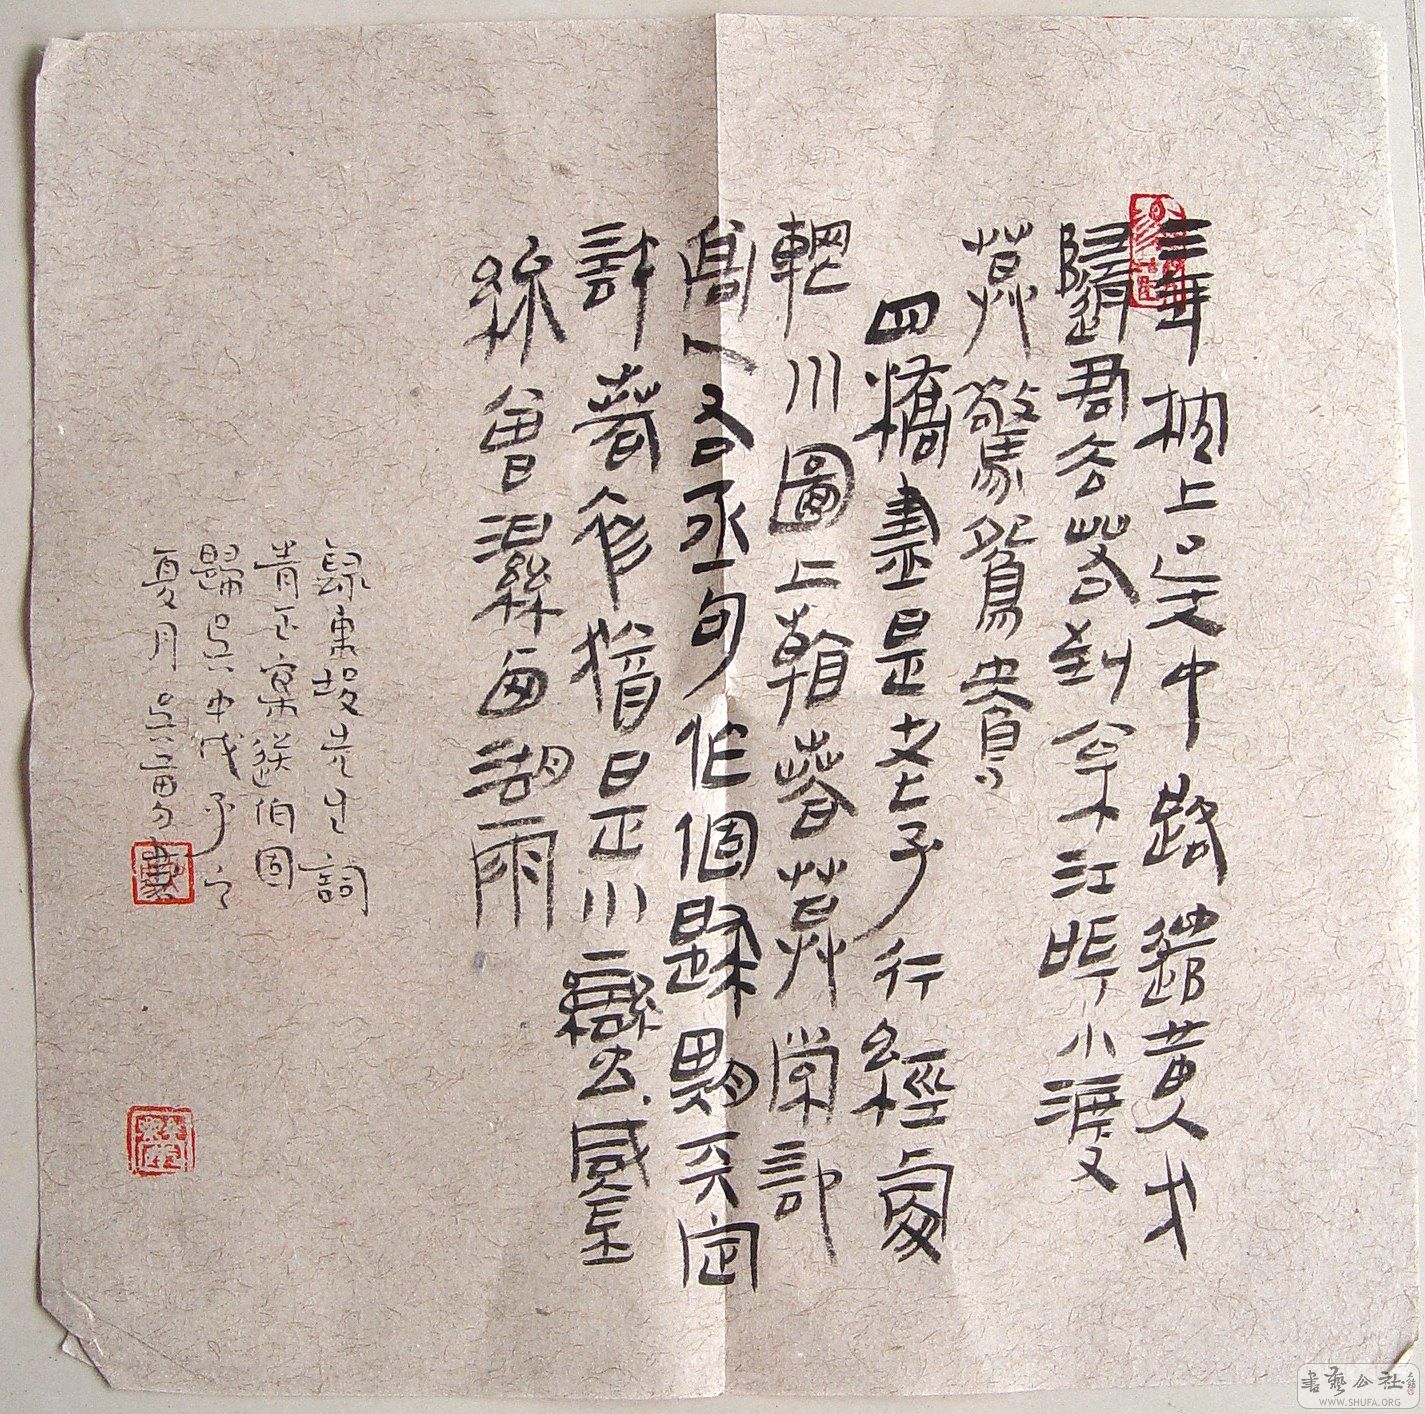 三年枕上吳中路遣黃犬
隨君去若到松江呼小渡
莫驚鴛鷺
四橋盡是老子行經處
輞川圖上看春莫常記
高人右丞句作個歸期天定
許春衫猶是小蠻鍼
線曾濕西湖雨
錄東坡先生詞
青玉案送伯固
歸吳中戊子之
夏月吳
書藝公社
WWW.SHUFA.ORG